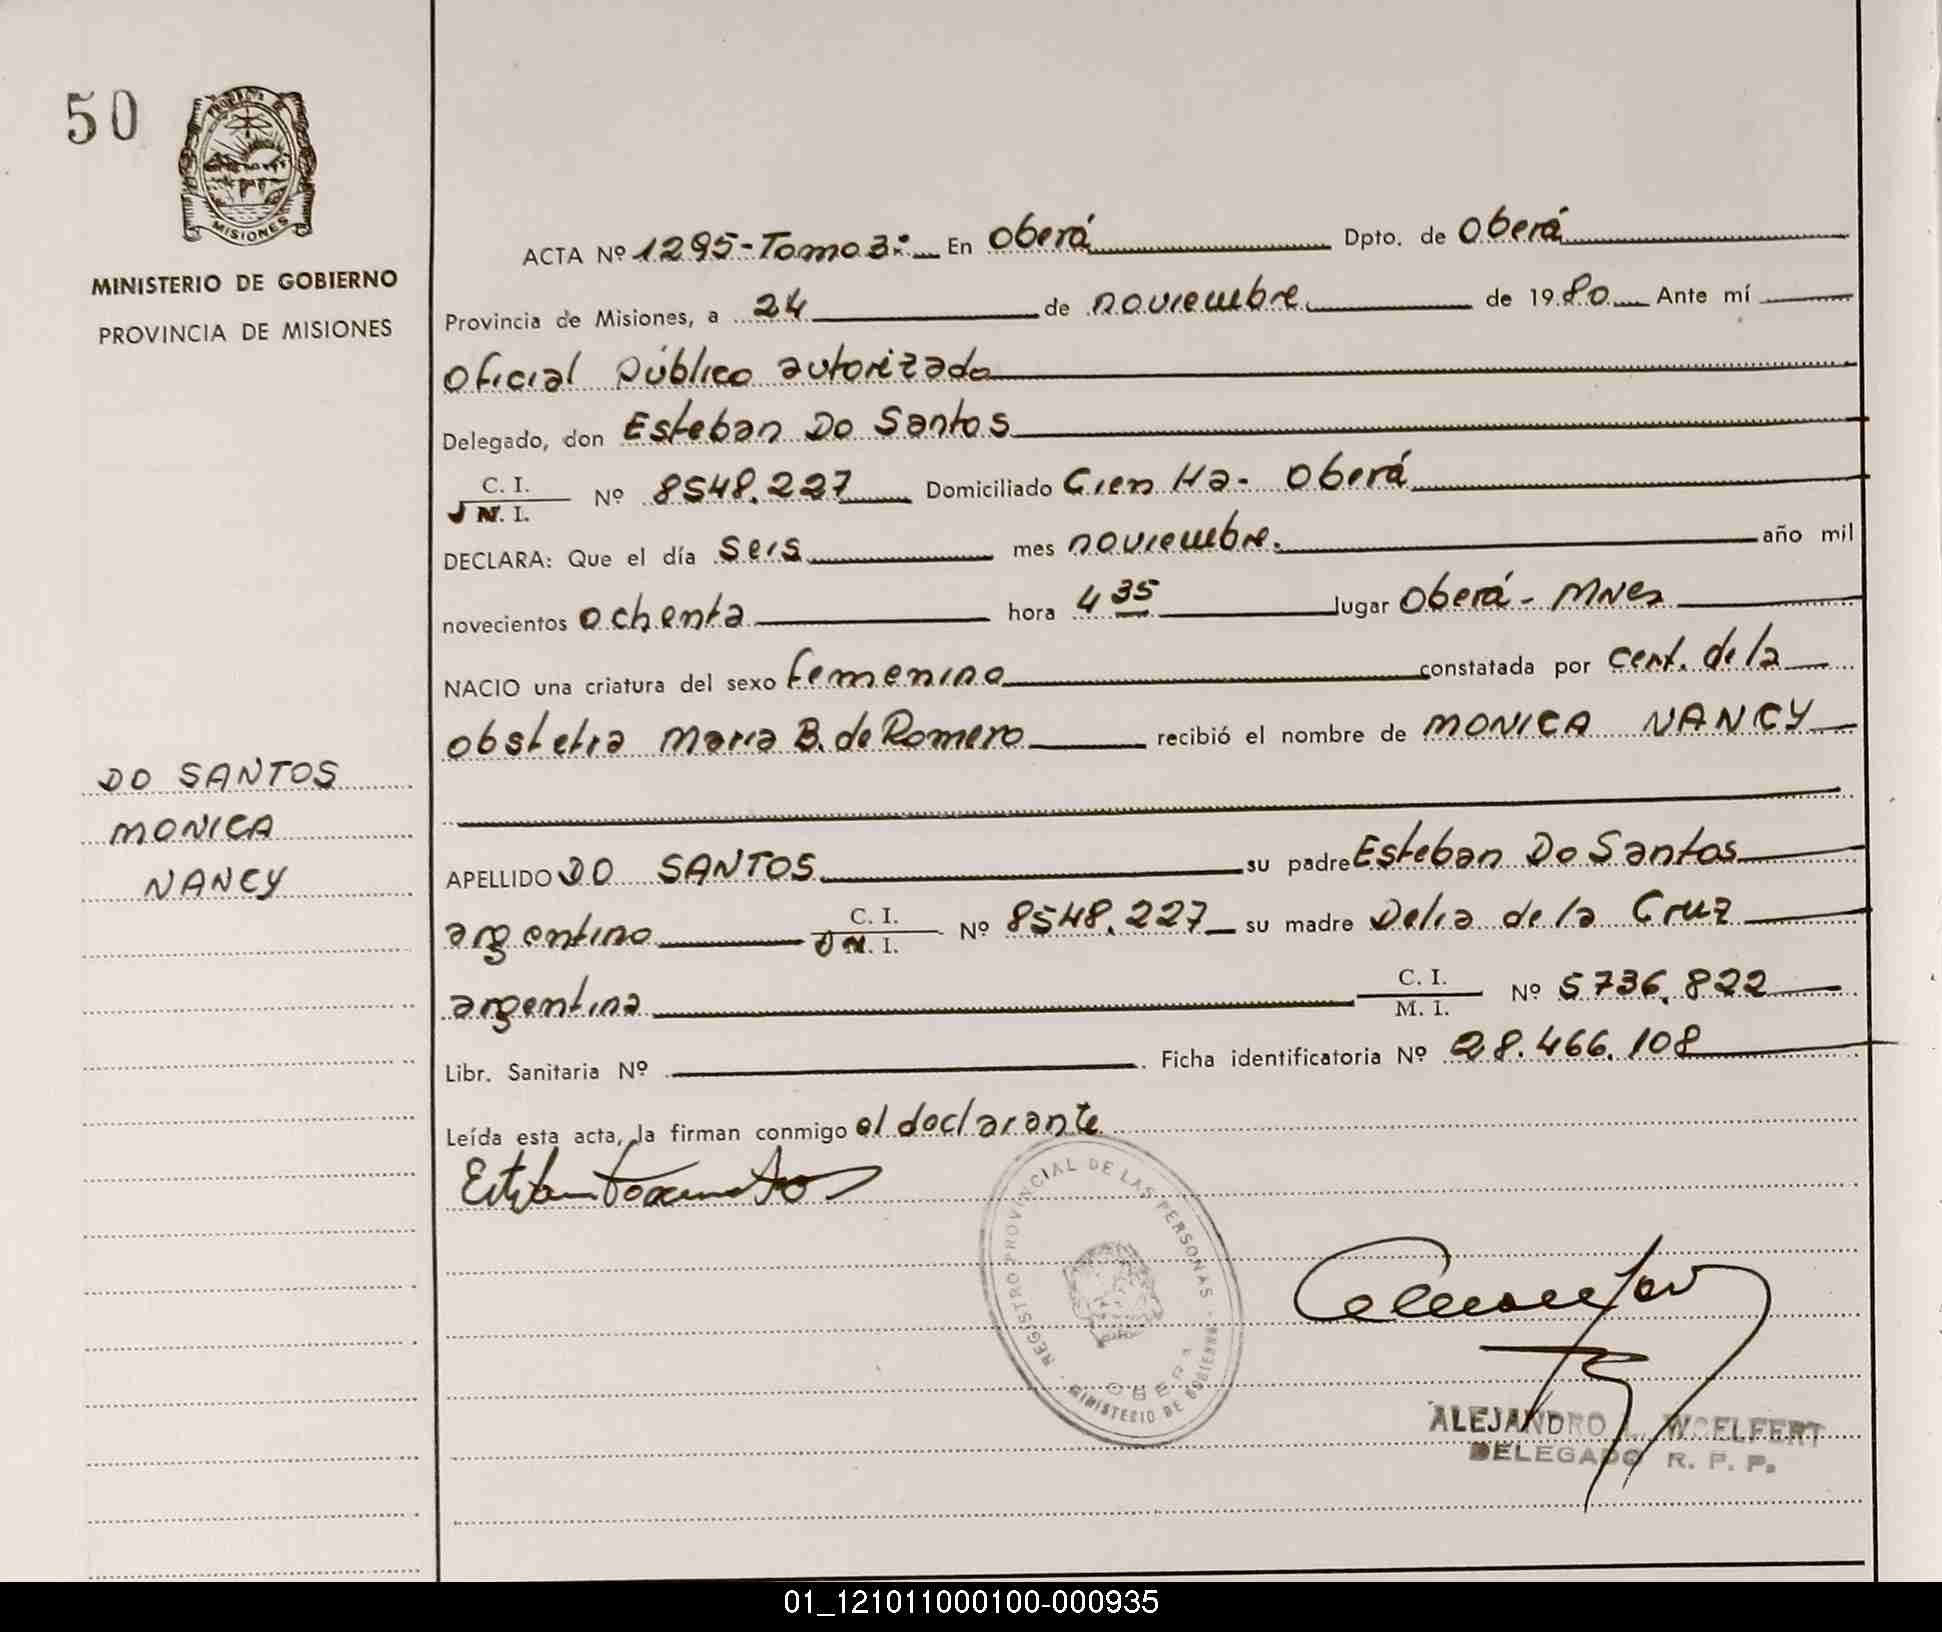 50
PROVINCIA DE
MISIONES
MINISTERIO DE GOBIERNO
PROVINCIA DE MISIONES
DO SANTOS
MONICA
NANCY
ACTA Nº 1295-Tomo 3: En Oberá Dpto. de Oberá
Provincia de Misiones, a 24 de noviembre de 1980 Ante mí
Oficial Público autorizado
Delegado, don Esteban Do Santos
C. I.
N. I. Nº 8548.227 Domiciliado Cien Ha- Oberá
DECLARA: Que el día seis mes noviembre. año mil
novecientos ochenta hora 4 35 lugar Oberá - Mnes
NACIO una criatura del sexo femenino constatada por cert. de la
obstetra Maria B. de Romero recibió el nombre de MONICA NANCY
APELLIDO DO SANTOS su padre Esteban Do Santos
argentino C. I.
N. I. Nº 8548.227 su madre Delia de la Cruz
argentina C. I.
M. I. Nº 5736.822
Libr. Sanitaria Nº Ficha identificatoria Nº 28.466.108
Leída esta acta, la firman conmigo el declarante
REGISTRO PROVINCIAL DE LAS PERSONAS
OBERA
MINISTERIO DE GOBIERNO
ALEJANDRO L. WOELFERT
DELEGADO R. P. P.
01_121011000100-000935